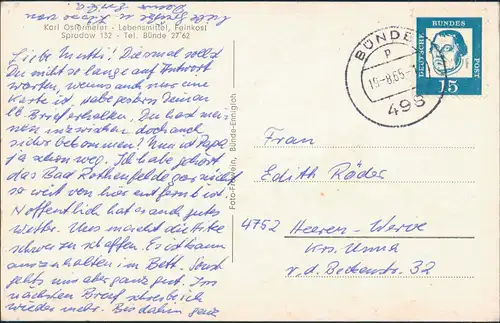 Viele Grüße u. Küsse von
Karl Ostermeier - Lebensmittel, Feinkost
Spradow 132 - Tel. Bünde 27 62
Liebe Mutti! Diesmal sollst
Du nicht so lange auf Antwort
warten, wenns auch nur eine
Karte ist, habe gestern Deinen
lb Brief erhalten, Du hast mei-
nen inzwischen doch auch
sicher bekommen! Nun ist Papa
ja schon weg. Ich habe gehört
das Bad Rothenfelde gar nicht
so weit von hier entfernt ist.
Hoffentlich hat er auch gutes
Wetter. Uns macht die Hitze
schwer zu schaffen. Es ist kaum
auszuhalten im Bett. Sonst
gehts uns aber ganz gut. Im
nächsten Brief schreibe ich
wieder mehr. Bis dahin ganz
Foto-Frewein, Bünde-Ennigloh
BÜNDE
p
19-8.65
498
DEUTSCHE BUNDESPOST
15
Frau
Edith Räder
4752 Heeren-Werve
Krs. Unna
v. d. Beckenstr. 32